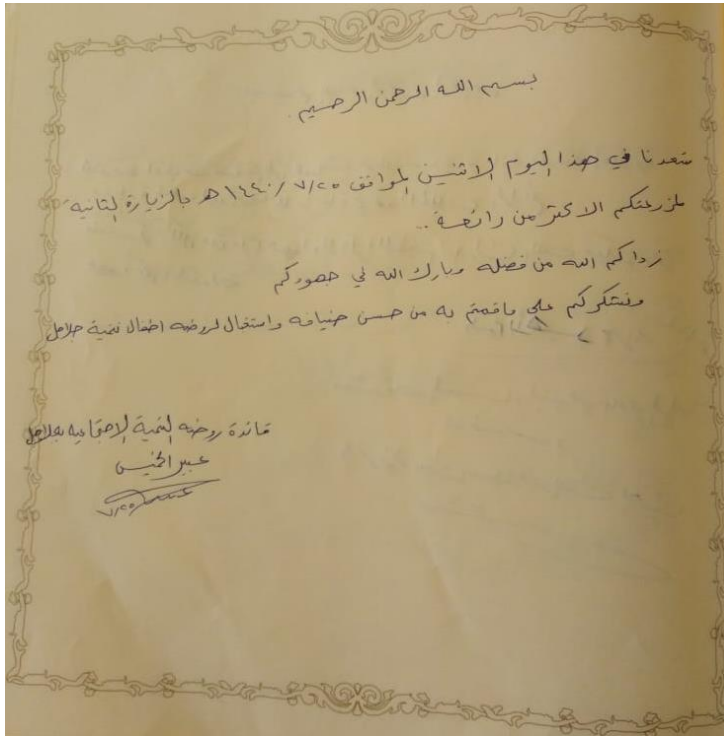 بسم الله الرحمن الرحيم
سعدنا في هذا اليوم الاثنين الموافق ٧/٢٥/ ١٤٤٠ هـ بالزيارة الثانية
لمزرعتكم الاكثر من رائعة ..
زداكم الله من فضله وبارك الله في جهودكم
ونشكركم على ماقمتم به من حسن ضيافه واستقبال لروضه اطفال تنمية جلاجل
قائدة روضه التنمية الاجتماعيه بجلاجل
عبير الخميس
٧/٢٥